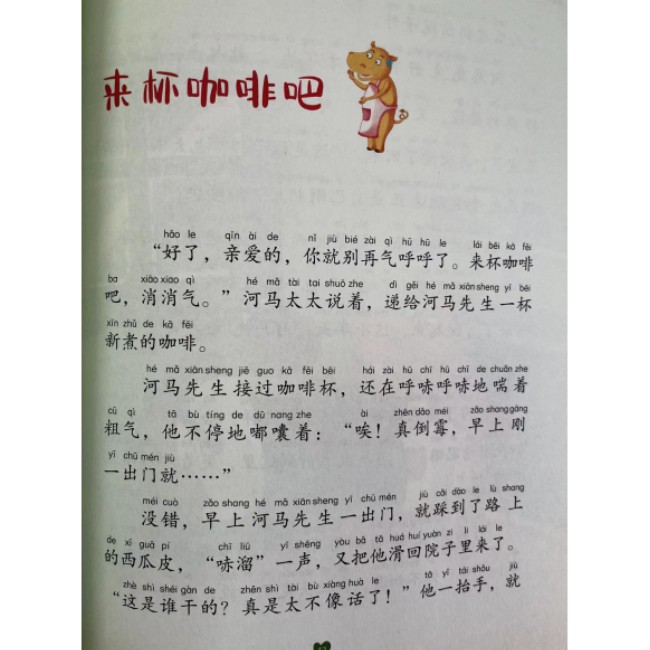 来杯咖啡吧
hǎo le qīn ài de nǐ jiù bié zài qì hū hū le lái bēi kā fēi
“好了，亲爱的，你就别再气呼呼了。来杯咖啡
ba xiāo xiao qì hé mǎ tài tai shuō zhe dì gěi hé mǎ xiān sheng yì bēi
吧，消消气。”河马太太说着，递给河马先生一杯
xīn zhǔ de kā fēi
新煮的咖啡。
hé mǎ xiān sheng jiē guo kā fēi bēi hái zài hū chī hū chī de chuǎn zhe
河马先生接过咖啡杯，还在呼哧呼哧地喘着
cū qì tā bù tíng de dū nang zhe ài zhēn dǎo méi zǎo shang gāng
粗气，他不停地嘟囔着：“唉！真倒霉，早上刚
yì chū mén jiù
一出门就……”
méi cuò zǎo shang hé mǎ xiān sheng yì chū mén jiù cǎi dào le lù shang
没错，早上河马先生一出门，就踩到了路上
de xī guā pí chī liū yì shēng yòu bǎ tā huá huí yuàn zi li lái le
的西瓜皮，“哧溜”一声，又把他滑回院子里来了。
zhè shì shéi gàn de zhēn shì tài bú xiàng huà le tā yì tái shǒu jiù
“这是谁干的？真是太不像话了！”他一抬手，就